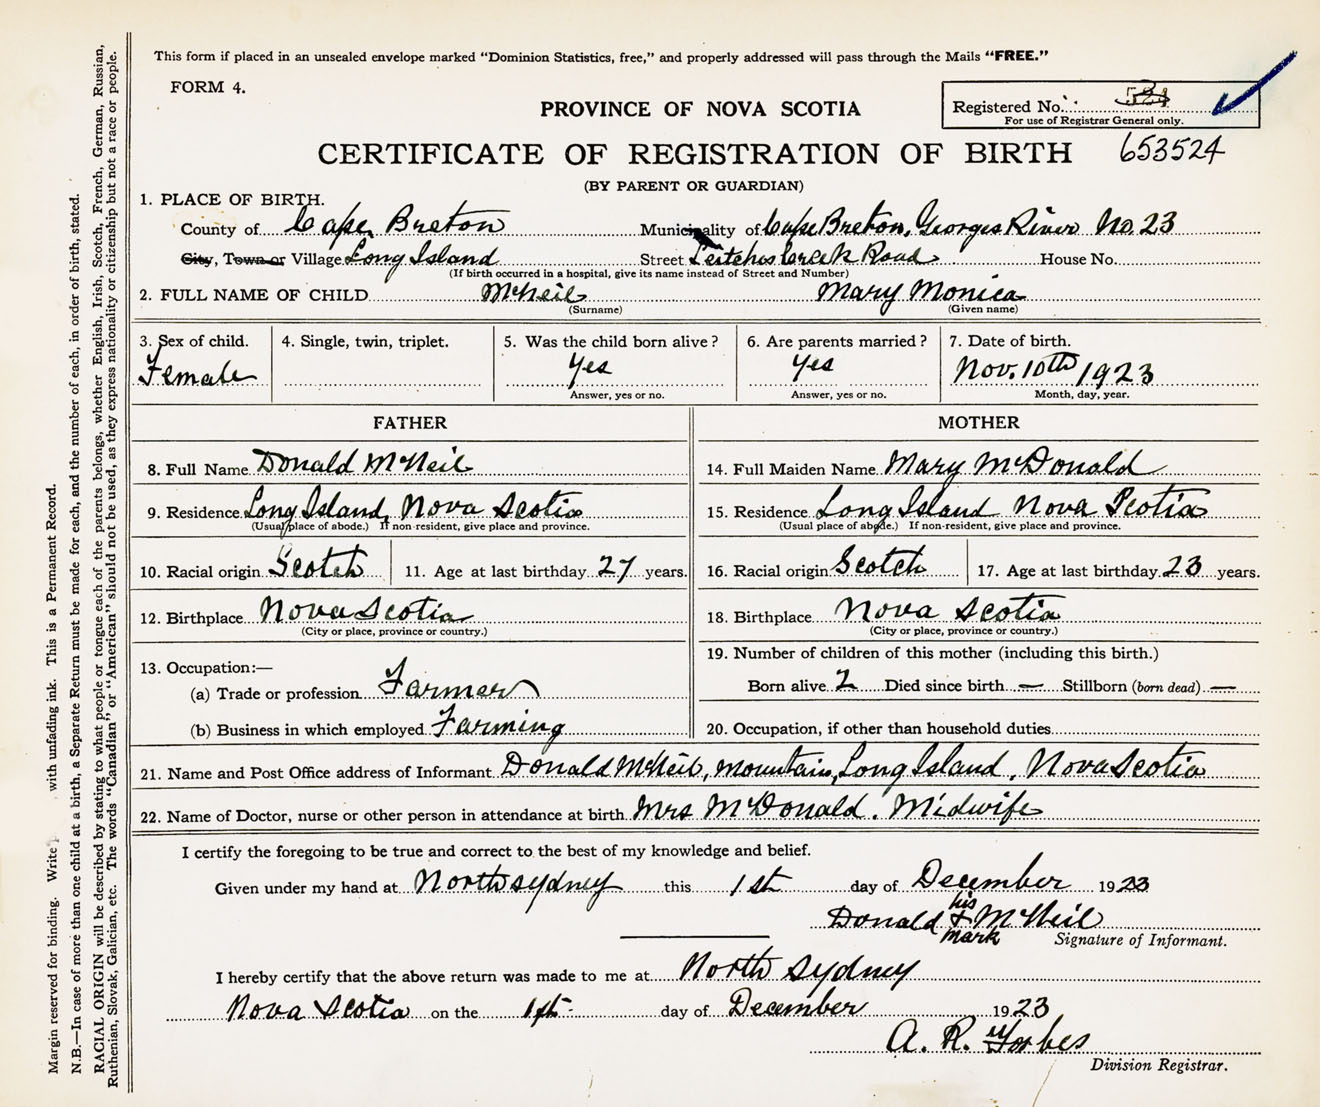 This form if placed in an unsealed envelope marked "Dominion Statistics, free," and properly addressed will pass through the Mails "FREE."
FORM 4.
PROVINCE OF NOVA SCOTIA
Registered No.
For use of Registrar General only.
CERTIFICATE OF REGISTRATION OF BIRTH 653524
(BY PARENT OR GUARDIAN)
1. PLACE OF BIRTH.
County of Cape Breton Municipality of Cape Breton, Georges River No. 23
City, Town or Village Long Island Street Leitches Creek Road House No.
(If birth occurred in a hospital, give its name instead of Street and Number)
2. FULL NAME OF CHILD McNeil Mary Monica
(Surname) (Given name)
3. Sex of child. 4. Single, twin, triplet. 5. Was the child born alive? 6. Are parents married? 7. Date of birth.
Female Yes Yes Nov. 10th 1923
Answer, yes or no. Answer, yes or no. Month, day, year.
FATHER MOTHER
8. Full Name Donald McNeil 14. Full Maiden Name Mary McDonald
9. Residence Long Island, Nova Scotia 15. Residence Long Island Nova Scotia
(Usual place of abode.) If non-resident, give place and province. (Usual place of abode.) If non-resident, give place and province.
10. Racial origin Scotch 11. Age at last birthday 27 years. 16. Racial origin Scotch 17. Age at last birthday 23 years.
12. Birthplace Nova Scotia 18. Birthplace Nova Scotia
(City or place, province or country.) (City or place, province or country.)
13. Occupation:— 19. Number of children of this mother (including this birth.)
(a) Trade or profession Farmer Born alive 2 Died since birth — Stillborn (born dead) —
(b) Business in which employed Farming 20. Occupation, if other than household duties
21. Name and Post Office address of Informant Donald McNeil, Mountain, Long Island, Nova Scotia
22. Name of Doctor, nurse or other person in attendance at birth Mrs McDonald. Midwife
I certify the foregoing to be true and correct to the best of my knowledge and belief.
Given under my hand at North Sydney this 1st day of December 1923
his
Donald X McNeil
mark Signature of Informant.
I hereby certify that the above return was made to me at North Sydney
Nova Scotia on the 1st day of December 1923
A. R. Forbes
Division Registrar.
Margin reserved for binding. Write with unfading ink. This is a Permanent Record.
N.B.—In case of more than one child at a birth, a Separate Return must be made for each, and the number of each, in order of birth, stated.
RACIAL ORIGIN will be described by stating to what people or tongue each of the parents belongs, whether English, Irish, Scotch, French, German, Russian,
Ruthenian, Slovak, Galician, etc. The words "Canadian" or "American" should not be used, as they express nationality or citizenship but not a race or people.